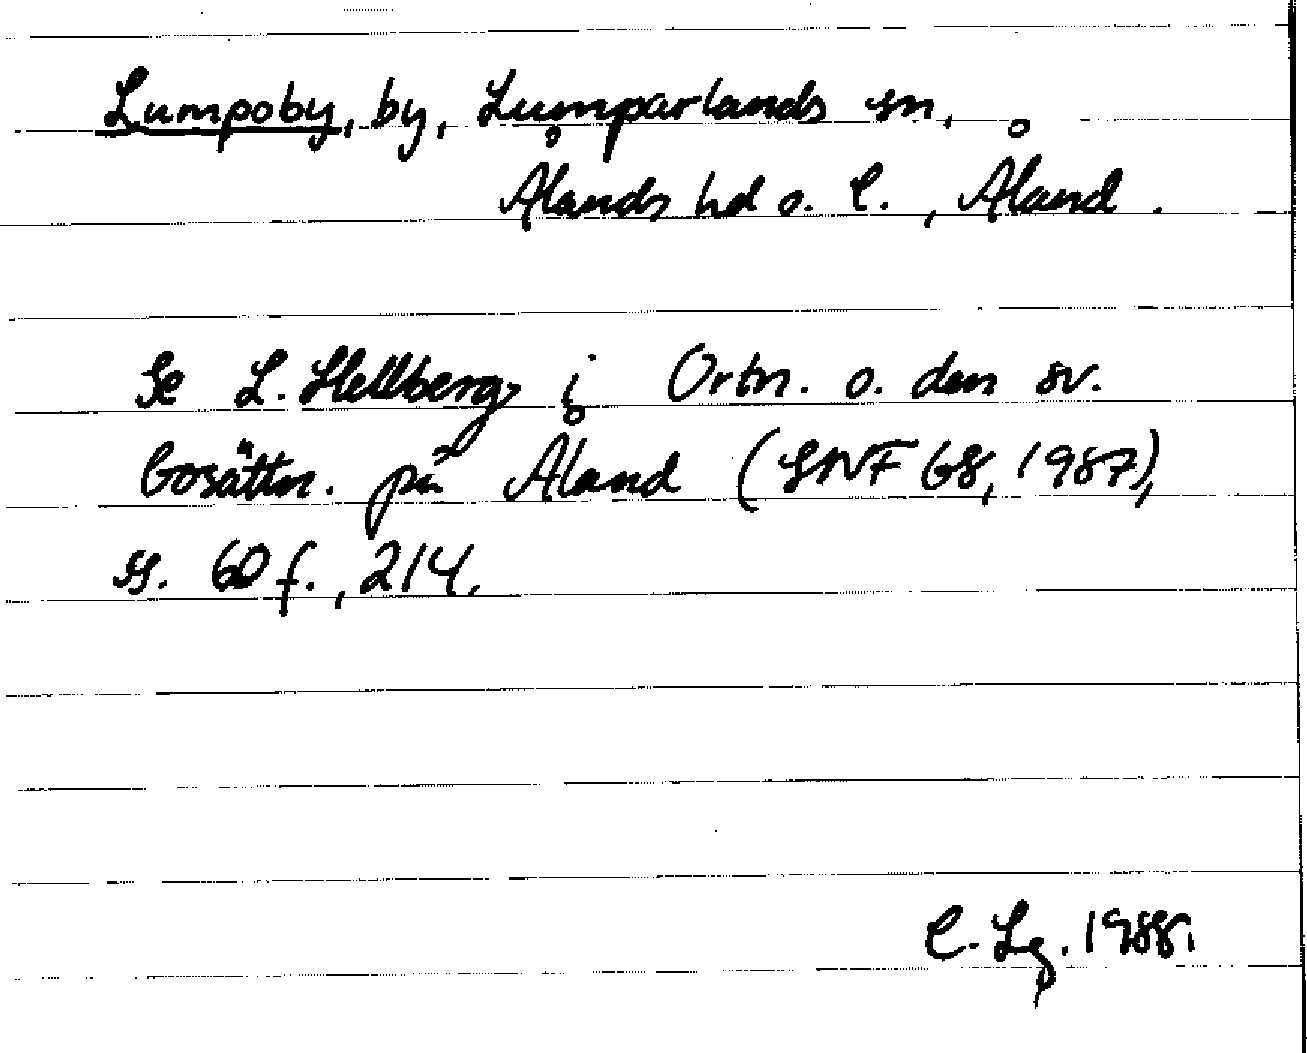 Lumpoby, by, Lumparlands sn,
Ålands hd o. l., Åland.
Se L. Hellberg i Ortn. o. den sv.
bosättn. på Åland (SNF 68, 1987),
ss. 60 f., 214.
C. Lg. 1988.